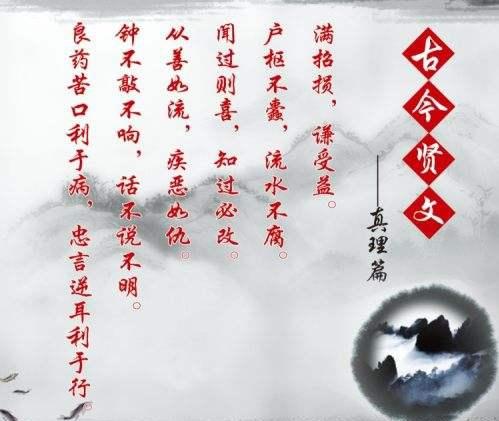 古今贤文
——真理篇
满招损，谦受益。
户枢不蠹，流水不腐。
闻过则喜，知过必改。
从善如流，疾恶如仇。
钟不敲不响，话不说不明。
良药苦口利于病，忠言逆耳利于行。